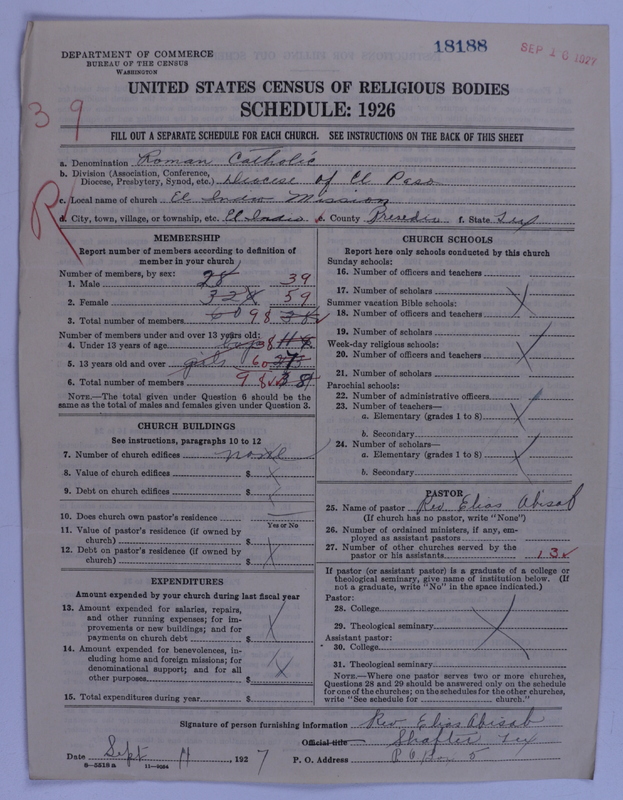 18188
SEP 16 1927
DEPARTMENT OF COMMERCE
BUREAU OF THE CENSUS
WASHINGTON
UNITED STATES CENSUS OF RELIGIOUS BODIES
SCHEDULE: 1926
39
R
FILL OUT A SEPARATE SCHEDULE FOR EACH CHURCH. SEE INSTRUCTIONS ON THE BACK OF THIS SHEET
a. Denomination Roman Catholic
b. Division (Association, Conference,
Diocese, Presbytery, Synod, etc.) Diocese of El Paso
c. Local name of church El Indio Mission
d. City, town, village, or township, etc. El Indio e. County Presidio f. State Tex
MEMBERSHIP
Report number of members according to definition of
member in your church
Number of members, by sex:
1. Male 28 39
2. Female 32 59
3. Total number of members 60 98 38
Number of members under and over 13 years old:
4. Under 13 years of age boys 38
5. 13 years old and over girls 60
6. Total number of members 98 38
NOTE.—The total given under Question 6 should be the
same as the total of males and females given under Question 3.
CHURCH BUILDINGS
See instructions, paragraphs 10 to 12
7. Number of church edifices none
8. Value of church edifices $
9. Debt on church edifices $
10. Does church own pastor's residence
Yes or No
11. Value of pastor's residence (if owned by
church) $
12. Debt on pastor's residence (if owned by
church) $
EXPENDITURES
Amount expended by your church during last fiscal year
13. Amount expended for salaries, repairs,
and other running expenses; for im-
provements or new buildings; and for
payments on church debt $
14. Amount expended for benevolences, in-
cluding home and foreign missions; for
denominational support; and for all
other purposes $
15. Total expenditures during year $
CHURCH SCHOOLS
Report here only schools conducted by this church
Sunday schools:
16. Number of officers and teachers
17. Number of scholars
Summer vacation Bible schools:
18. Number of officers and teachers
19. Number of scholars
Week-day religious schools:
20. Number of officers and teachers
21. Number of scholars
Parochial schools:
22. Number of administrative officers
23. Number of teachers—
a. Elementary (grades 1 to 8)
b. Secondary
24. Number of scholars—
a. Elementary (grades 1 to 8)
b. Secondary
PASTOR
25. Name of pastor Rev. Elias Abisab
(If church has no pastor, write "None")
26. Number of ordained ministers, if any, em-
ployed as assistant pastors
27. Number of other churches served by the
pastor or his assistants 13
If pastor (or assistant pastor) is a graduate of a college or
theological seminary, give name of institution below. (If
not a graduate, write "No" in the space indicated.)
Pastor:
28. College
29. Theological seminary
Assistant pastor:
30. College
31. Theological seminary
NOTE.—Where one pastor serves two or more churches,
Questions 28 and 29 should be answered only on the schedule
for one of the churches; on the schedules for the other churches,
write "See schedule for church."
Signature of person furnishing information Rev Elias Abisab
Official title Shafter Tex
Date Sept 11, 1927 P. O. Address P O Box 5
8—5518a 11—9034